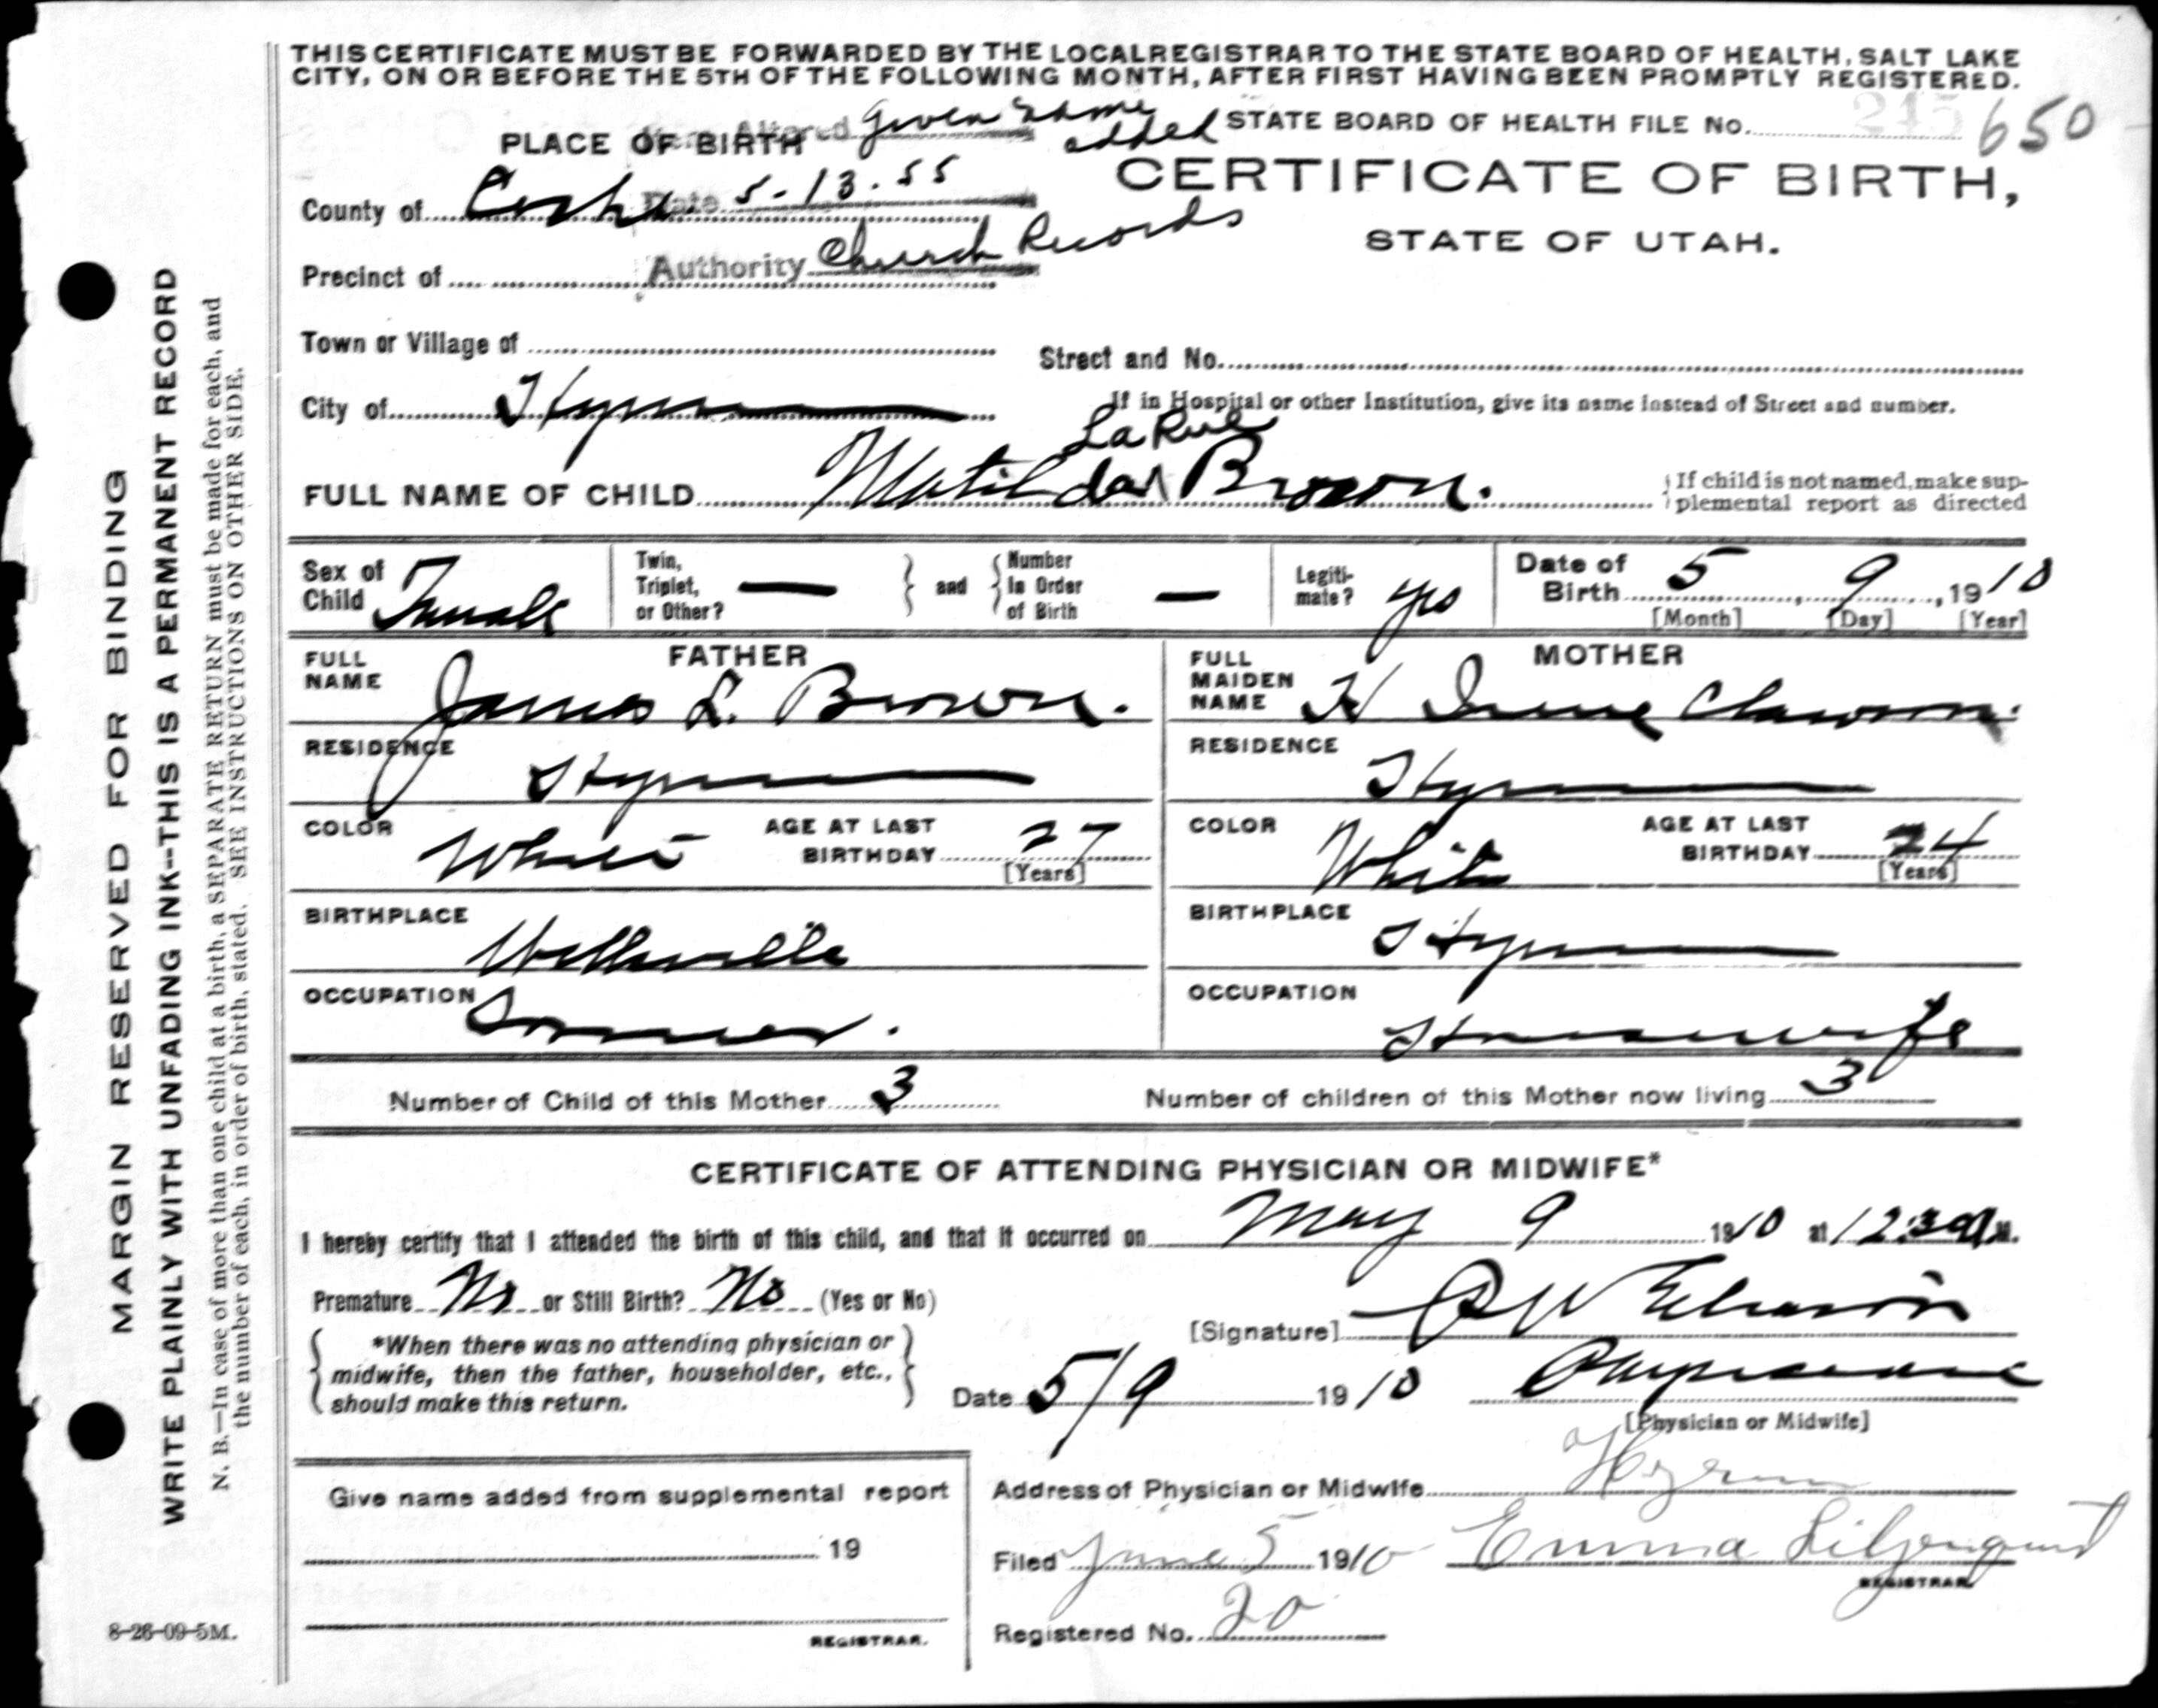 THIS CERTIFICATE MUST BE FORWARDED BY THE LOCAL REGISTRAR TO THE STATE BOARD OF HEALTH, SALT LAKE
CITY, ON OR BEFORE THE 5TH OF THE FOLLOWING MONTH, AFTER FIRST HAVING BEEN PROMPTLY REGISTERED.
Altered Given name added
STATE BOARD OF HEALTH FILE No. 245 650
PLACE OF BIRTH
CERTIFICATE OF BIRTH,
County of Cache Date 5-13-55
STATE OF UTAH.
Precinct of Authority Church Records
Town or Village of
Street and No.
City of Hyrum
If in Hospital or other Institution, give its name instead of Street and number.
LaRue
FULL NAME OF CHILD Matilda Brown.
If child is not named, make sup-
plemental report as directed
Sex of Child Female
Twin, Triplet, or Other? —
and
Number In Order of Birth —
Legiti-mate? yes
Date of Birth 5, 9, 1910
[Month] [Day] [Year]
FATHER
FULL NAME James L. Brown.
RESIDENCE Hyrum
COLOR White
AGE AT LAST BIRTHDAY 27
[Years]
BIRTHPLACE Wellsville
OCCUPATION
MOTHER
FULL MAIDEN NAME H Irene Clawson
RESIDENCE Hyrum
COLOR White
AGE AT LAST BIRTHDAY 24
[Years]
BIRTHPLACE Hyrum
OCCUPATION Housewife
Number of Child of this Mother 3
Number of children of this Mother now living 3
CERTIFICATE OF ATTENDING PHYSICIAN OR MIDWIFE*
I hereby certify that I attended the birth of this child, and that it occurred on May 9 1910 at 12:30 A M.
Premature No or Still Birth? No (Yes or No)
[Signature]
*When there was no attending physician or
midwife, then the father, householder, etc.,
should make this return.
Date 5/9 1910 Physician
[Physician or Midwife]
Give name added from supplemental report
19
REGISTRAR.
Address of Physician or Midwife Hyrum
Filed June 5 1910 Emma Liljenquist
REGISTRAR
Registered No. 20
MARGIN RESERVED FOR BINDING
WRITE PLAINLY WITH UNFADING INK--THIS IS A PERMANENT RECORD
N. B.—In case of more than one child at a birth, a SEPARATE RETURN must be made for each, and
the number of each, in order of birth, stated. SEE INSTRUCTIONS ON OTHER SIDE.
8-26-09-5M.